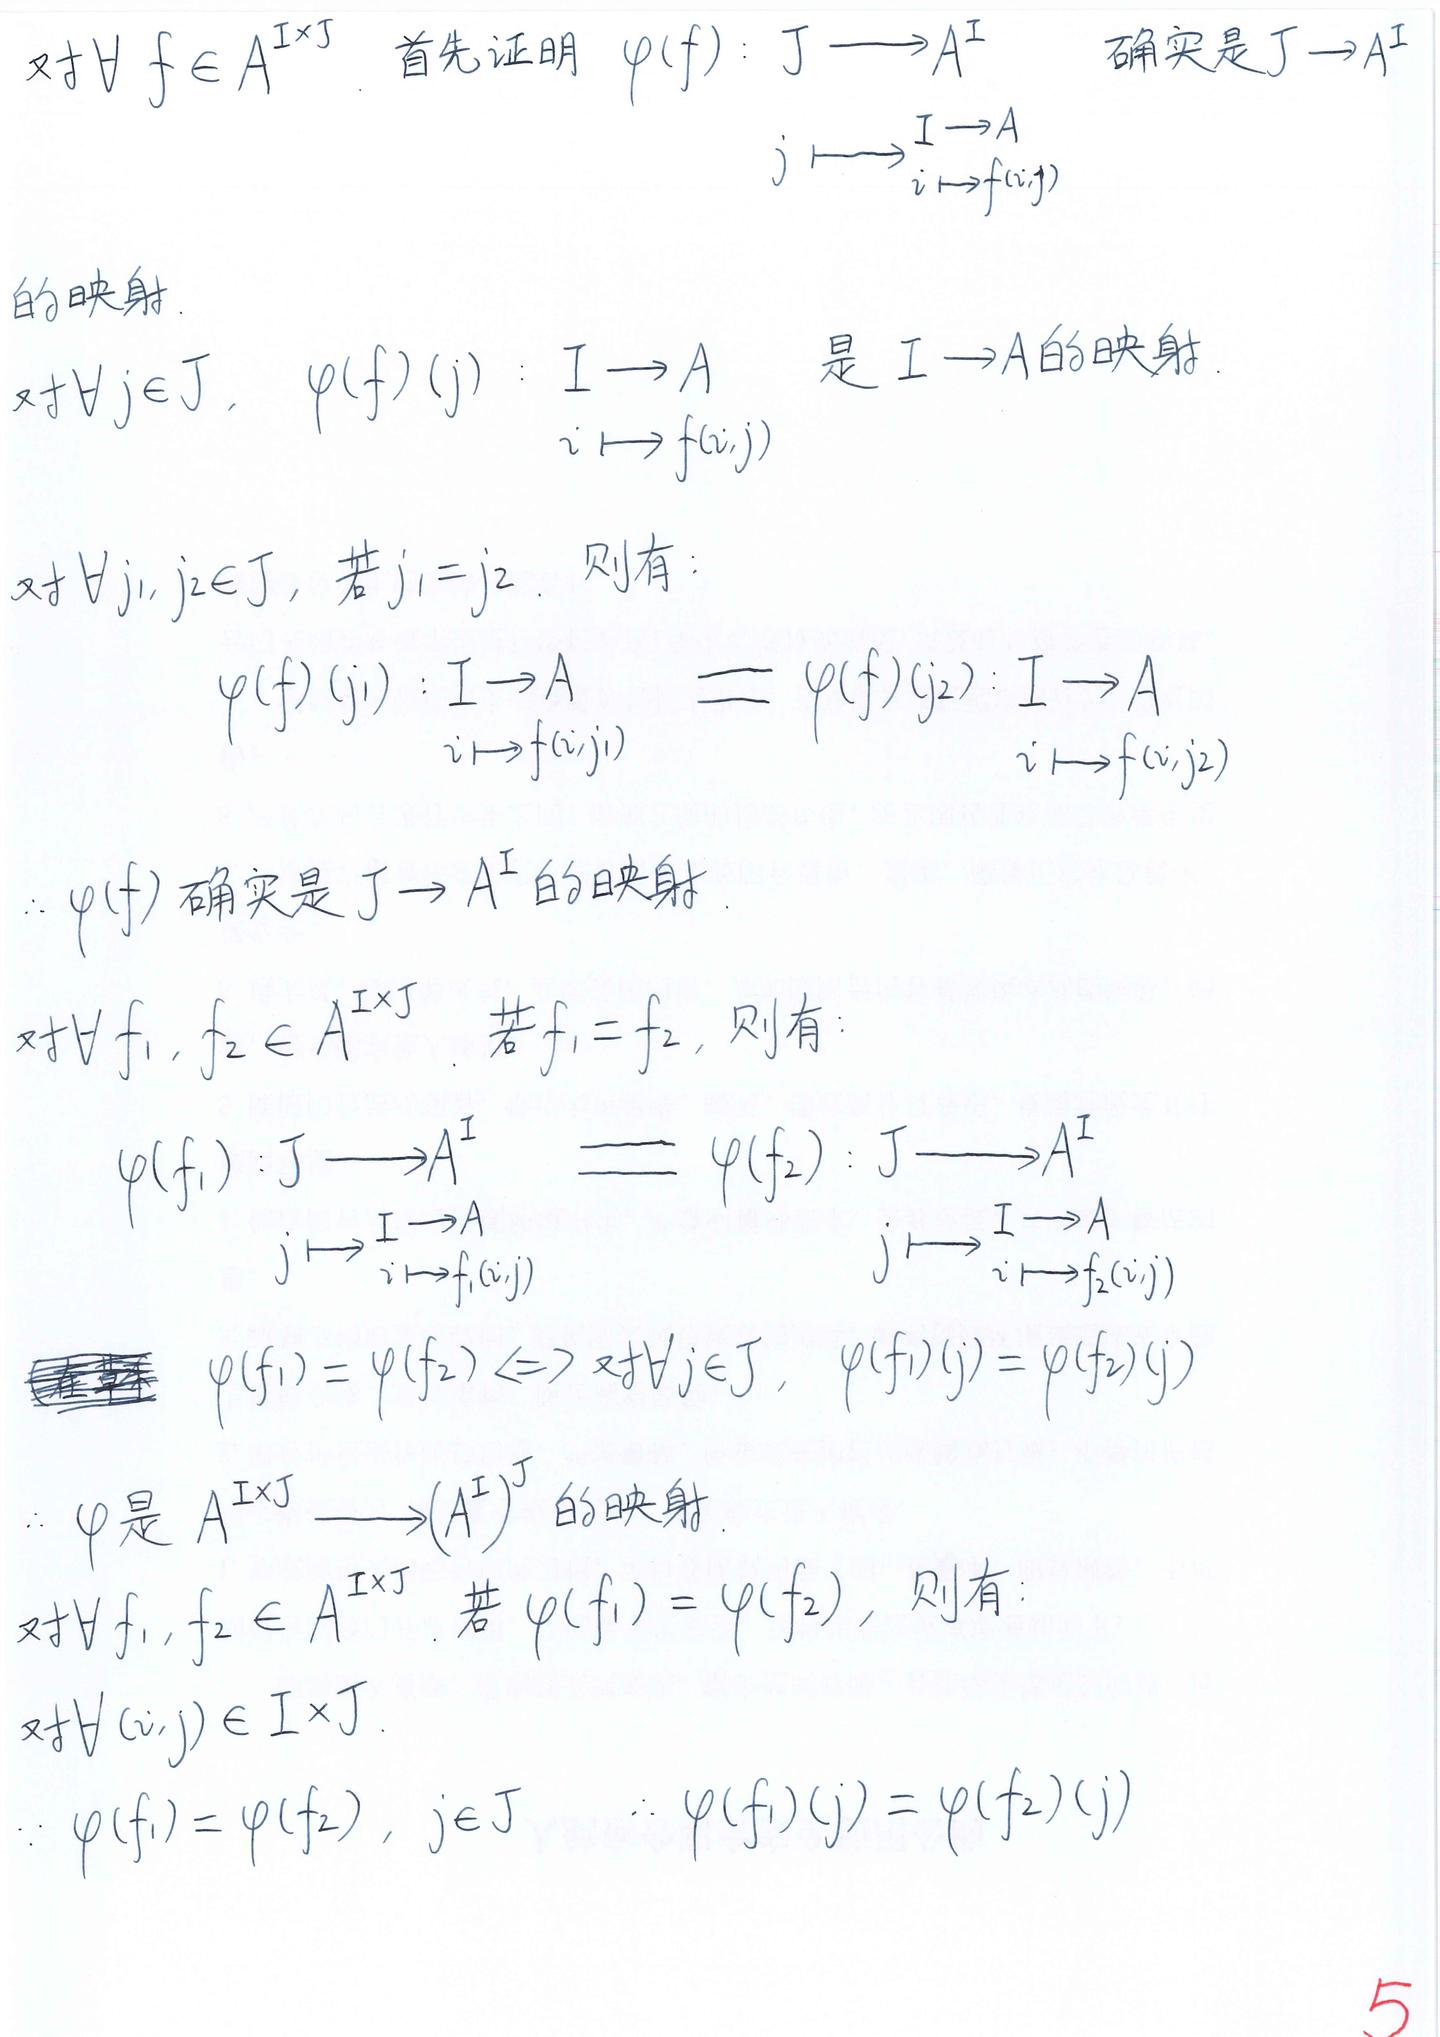 对∀ f ∈ A^{I×J}. 首先证明 φ(f): J ⟶ A^I 确实是 J → A^I
j ⟼ I → A
i ↦ f(i,j)
的映射.
对∀ j ∈ J, φ(f)(j): I → A 是 I → A 的映射.
i ↦ f(i,j)
对∀ j₁, j₂ ∈ J, 若 j₁ = j₂. 则有:
φ(f)(j₁): I → A = φ(f)(j₂): I → A
i ↦ f(i,j₁) i ↦ f(i,j₂)
∴ φ(f) 确实是 J → A^I 的映射.
对∀ f₁, f₂ ∈ A^{I×J}. 若 f₁ = f₂, 则有:
φ(f₁): J ⟶ A^I = φ(f₂): J ⟶ A^I
j ⟼ I → A j ⟼ I → A
i ↦ f₁(i,j) i ↦ f₂(i,j)
φ(f₁) = φ(f₂) <=> 对∀ j ∈ J, φ(f₁)(j) = φ(f₂)(j)
∴ φ 是 A^{I×J} ⟶ (A^I)^J 的映射.
对∀ f₁, f₂ ∈ A^{I×J}. 若 φ(f₁) = φ(f₂), 则有:
对∀ (i,j) ∈ I×J.
∵ φ(f₁) = φ(f₂), j ∈ J ∴ φ(f₁)(j) = φ(f₂)(j)
5